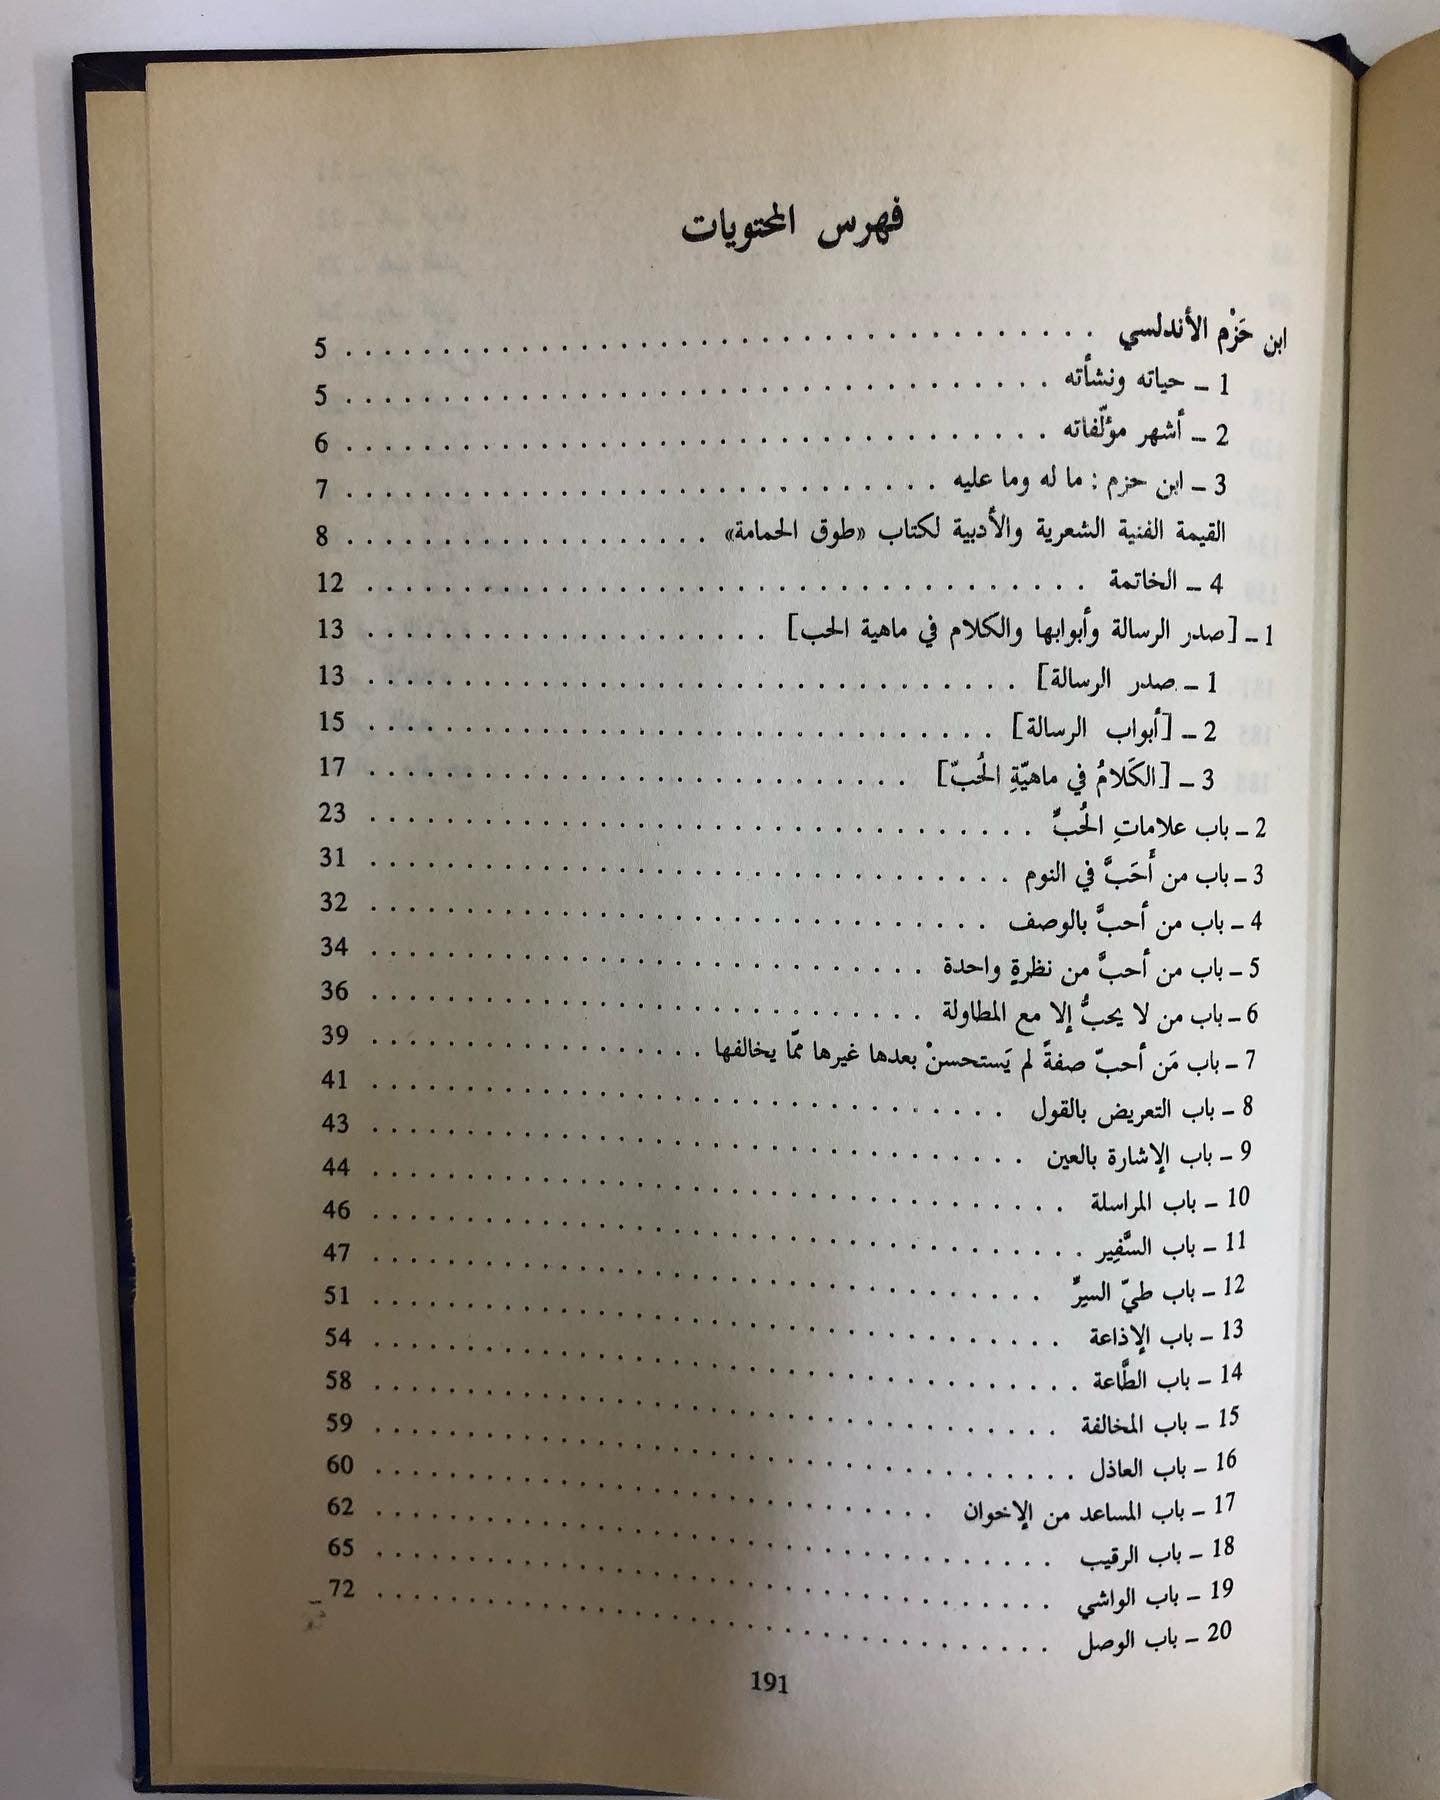 فهرس المحتويات
ابن حَزْم الأندلسي . . . . . . . . . . 5
1 ـ حياته ونشأته . . . . . . . . . . 5
2 ـ أشهر مؤلّفاته . . . . . . . . . . 6
3 ـ ابن حزم : ما له وما عليه . . . . . . . . . . 7
القيمة الفنية الشعرية والأدبية لكتاب «طوق الحمامة» . . . . . . . . . . 8
4 ـ الخاتمة . . . . . . . . . . 12
1 ـ [صدر الرسالة وأبوابها والكلام في ماهية الحب] . . . . . . . . . . 13
1 ـ صدر الرسالة] . . . . . . . . . . 13
2 ـ [أبواب الرسالة] . . . . . . . . . . 15
3 ـ [الكَلامُ في ماهيّةِ الحُبّ] . . . . . . . . . . 17
2 ـ باب علاماتِ الحُبِّ . . . . . . . . . . 23
3 ـ باب من أَحَبَّ في النوم . . . . . . . . . . 31
4 ـ باب من أحبَّ بالوصف . . . . . . . . . . 32
5 ـ باب من أحبَّ من نظرةٍ واحدة . . . . . . . . . . 34
6 ـ باب من لا يحبُّ إلا مع المطاولة . . . . . . . . . . 36
7 ـ باب مَن أحبّ صفةً لم يَستحسنْ بعدها غيرها ممّا يخالفها . . . . . . . . . . 39
8 ـ باب التعريض بالقول . . . . . . . . . . 41
9 ـ باب الإشارة بالعين . . . . . . . . . . 43
10 ـ باب المراسلة . . . . . . . . . . 44
11 ـ باب السَّفِير . . . . . . . . . . 46
12 ـ باب طيّ السرِّ . . . . . . . . . . 47
13 ـ باب الإذاعة . . . . . . . . . . 51
14 ـ باب الطَّاعة . . . . . . . . . . 54
15 ـ باب المخالفة . . . . . . . . . . 58
16 ـ باب العاذل . . . . . . . . . . 59
17 ـ باب المساعد من الإخوان . . . . . . . . . . 60
18 ـ باب الرقيب . . . . . . . . . . 62
19 ـ باب الواشي . . . . . . . . . . 65
20 ـ باب الوصل . . . . . . . . . . 72
191